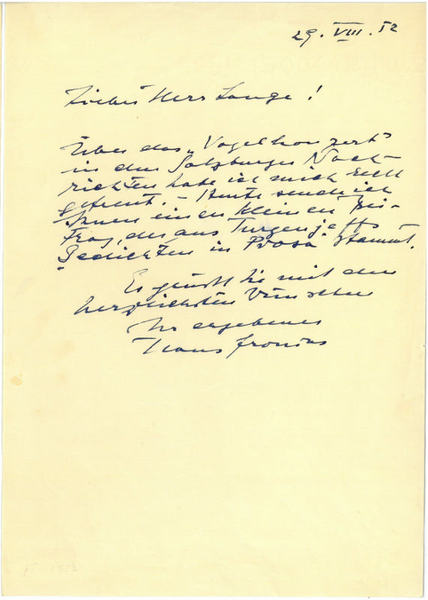 29. VIII. 52
Lieber Herr Lange!
Über das "Vogelkonzert"
in den Salzburger Nach-
richten habe ich mich sehr
gefreut. - Heute sende ich
Ihnen einen kleinen Bei-
trag, der aus Turgenjeffs
"Gedichten in Prosa" stammt.
Es grüßt Sie mit den
herzlichsten Wünschen
Ihr ergebener
Hans Fronius